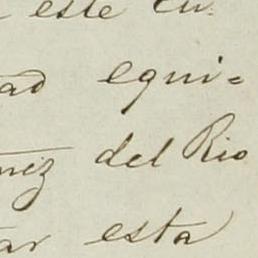 este cu
ad equi=
nez del Rio
ar esta